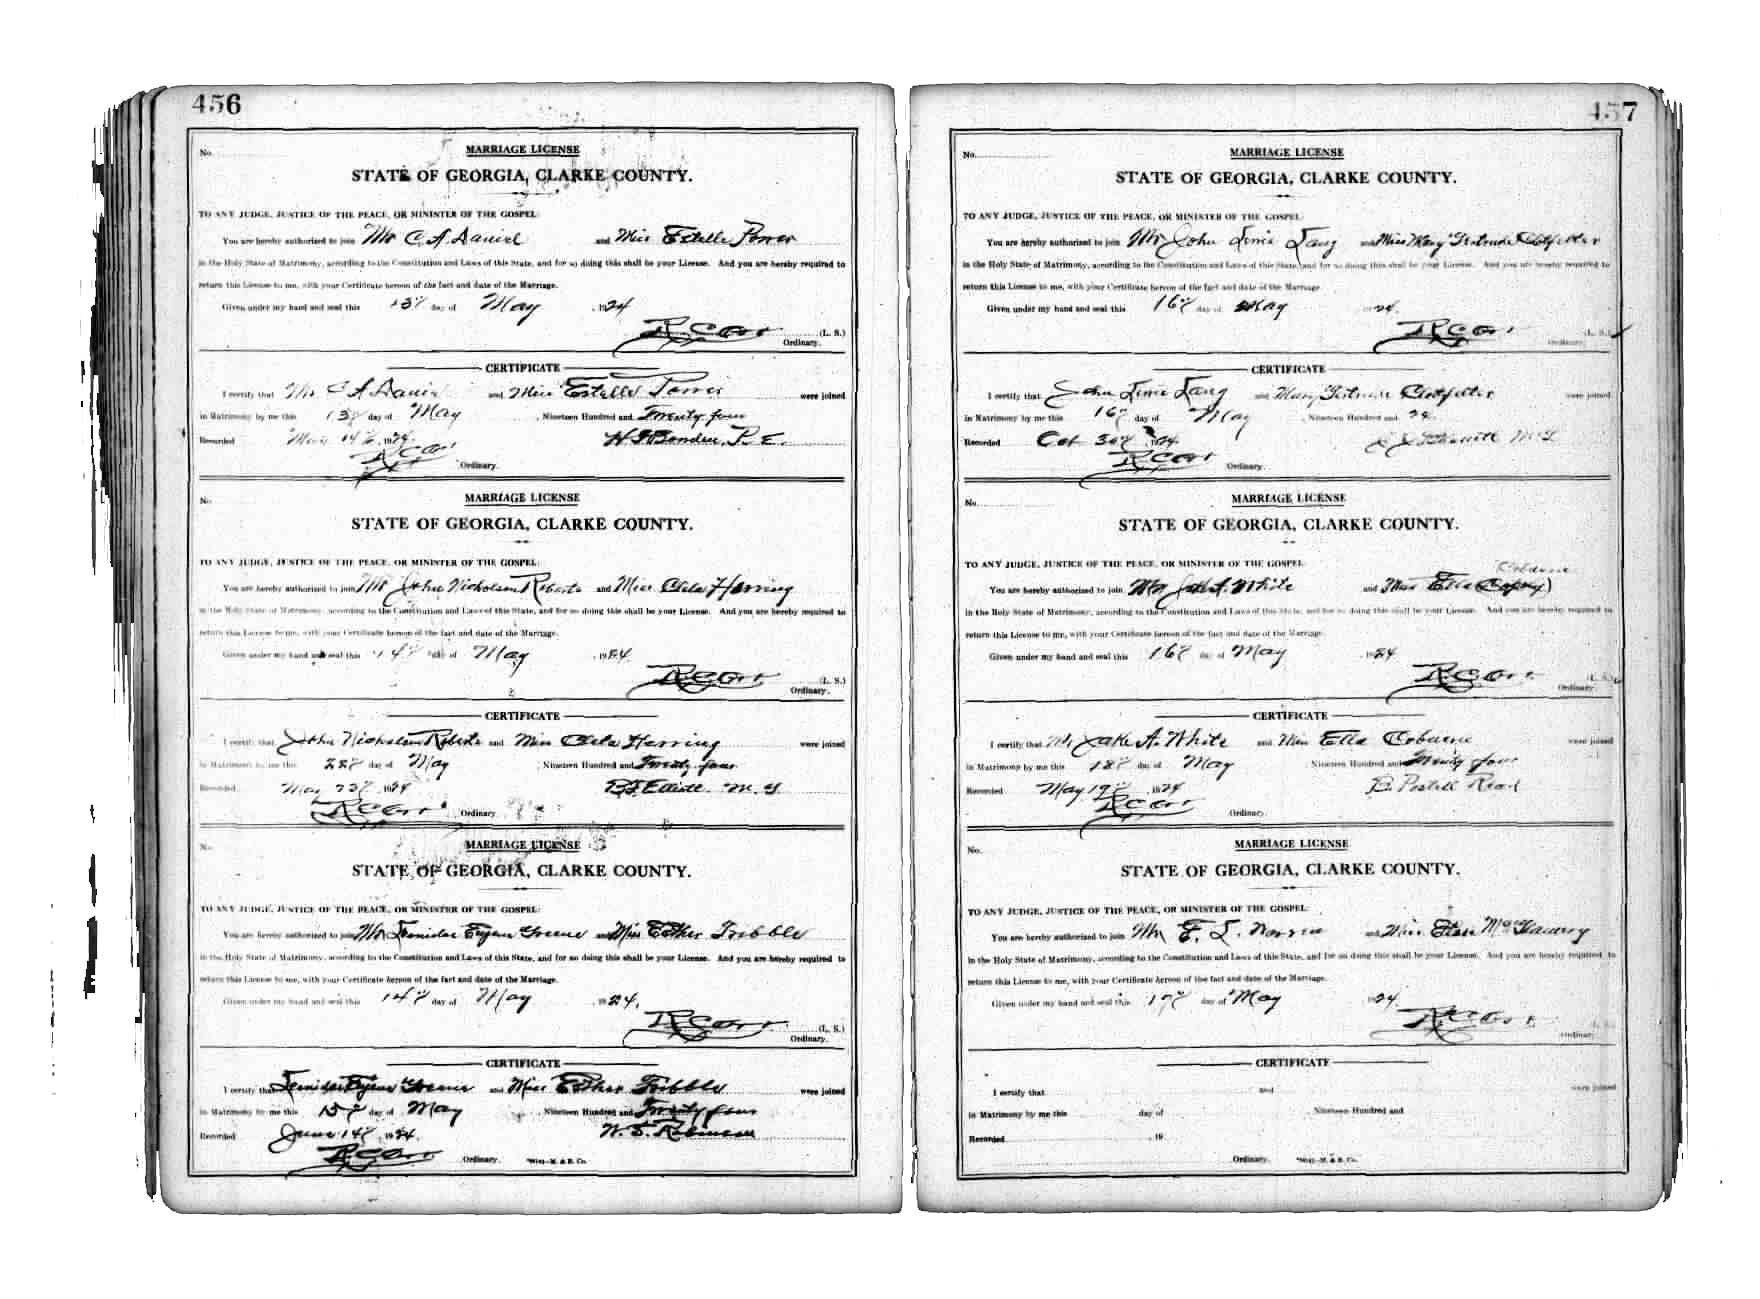 456
No.
MARRIAGE LICENSE
STATE OF GEORGIA, CLARKE COUNTY.
TO ANY JUDGE, JUSTICE OF THE PEACE, OR MINISTER OF THE GOSPEL:
You are hereby authorized to join Mr C. A. Daniel and Miss Estelle Power
in the Holy State of Matrimony, according to the Constitution and Laws of this State, and for so doing this shall be your License. And you are hereby required to
return this License to me, with your Certificate hereon of the fact and date of the Marriage.
Given under my hand and seal this 13th day of May , 1924
R C Orr (L. S.)
Ordinary.
CERTIFICATE
I certify that Mr. C A Daniel and Miss Estelle Power were joined
in Matrimony by me this 13th day of May , Nineteen Hundred and Twenty four
Recorded May 14th, 1924. P. E.
R C Orr Ordinary.
No.
MARRIAGE LICENSE
STATE OF GEORGIA, CLARKE COUNTY.
TO ANY JUDGE, JUSTICE OF THE PEACE, OR MINISTER OF THE GOSPEL:
You are hereby authorized to join Mr John Nicholson Roberts and Miss Clela Herring
in the Holy State of Matrimony, according to the Constitution and Laws of this State, and for so doing this shall be your License. And you are hereby required to
return this License to me, with your Certificate hereon of the fact and date of the Marriage.
Given under my hand and seal this 14th day of May , 1924.
R C Orr (L. S.)
Ordinary.
CERTIFICATE
I certify that John Nicholson Roberts and Miss Clela Herring were joined
in Matrimony by me this 22th day of May , Nineteen Hundred and Twenty four
Recorded May 23th, 1924 Elliott. M. G.
R C Orr Ordinary.
No.
MARRIAGE LICENSE
STATE OF GEORGIA, CLARKE COUNTY.
TO ANY JUDGE, JUSTICE OF THE PEACE, OR MINISTER OF THE GOSPEL:
You are hereby authorized to join Mr Leonidas Eugene Greene and Miss Esther Tribble
in the Holy State of Matrimony, according to the Constitution and Laws of this State, and for so doing this shall be your License. And you are hereby required to
return this License to me, with your Certificate hereon of the fact and date of the Marriage.
Given under my hand and seal this 14th day of May , 1924.
R C Orr (L. S.)
Ordinary.
CERTIFICATE
I certify that Leonidas Eugene Greene and Miss Esther Tribble were joined
in Matrimony by me this 15th day of May Nineteen Hundred and Twenty four
Recorded June 14th 1924. Robinson
R C Orr Ordinary.
457
No.
MARRIAGE LICENSE
STATE OF GEORGIA, CLARKE COUNTY.
TO ANY JUDGE, JUSTICE OF THE PEACE, OR MINISTER OF THE GOSPEL:
You are hereby authorized to join Mr John Lang and Miss Mary Gertrude Clotfelter
in the Holy State of Matrimony, according to the Constitution and Laws of this State, and for so doing this shall be your License. And you are hereby required to
return this License to me, with your Certificate hereon of the fact and date of the Marriage.
Given under my hand and seal this 16th day of May 1924.
R C Orr (L. S.)
Ordinary.
CERTIFICATE
I certify that John Lang and Mary Gertrude Clotfelter were joined
in Matrimony by me this 16th day of May , Nineteen Hundred and 24.
Recorded Oct 30th, 1924 M G
R C Orr Ordinary.
No.
MARRIAGE LICENSE
STATE OF GEORGIA, CLARKE COUNTY.
TO ANY JUDGE, JUSTICE OF THE PEACE, OR MINISTER OF THE GOSPEL:
Coburne
You are hereby authorized to join Mr Jake A. White and Miss Ella
in the Holy State of Matrimony, according to the Constitution and Laws of this State, and for so doing this shall be your License. And you are hereby required to
return this License to me, with your Certificate hereon of the fact and date of the Marriage.
Given under my hand and seal this 16th day of May , 1924
R C Orr (L. S.)
Ordinary.
CERTIFICATE
I certify that Mr Jake A. White and Miss Ella Coburne were joined
in Matrimony by me this 18th day of May , Nineteen Hundred and Twenty four
Recorded May 19th , 1924 B. Postell Read
R C Orr Ordinary.
No.
MARRIAGE LICENSE
STATE OF GEORGIA, CLARKE COUNTY.
TO ANY JUDGE, JUSTICE OF THE PEACE, OR MINISTER OF THE GOSPEL:
You are hereby authorized to join Mr E. L. Norris and Miss
in the Holy State of Matrimony, according to the Constitution and Laws of this State, and for so doing this shall be your License. And you are hereby required to
return this License to me, with your Certificate hereon of the fact and date of the Marriage.
Given under my hand and seal this 17th day of May , 1924.
R C Orr (L. S.)
Ordinary.
CERTIFICATE
I certify that and were joined
in Matrimony by me this day of Nineteen Hundred and
Recorded , 19
Ordinary.